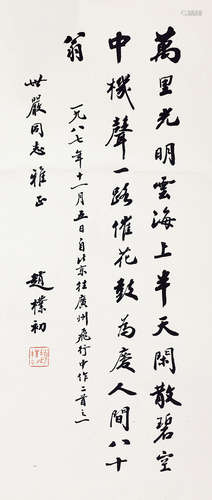 萬里光明雲海上半天閑散碧空
中機聲一路催花鼓為慶人間八十
翁
一九八七年十一月五日自北京往廣州飛行中作二首之一
世嚴同志雅正
趙樸初